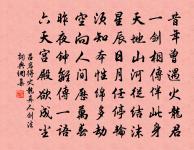 昔年曾遇火龍君
一劍相傳伴此身
天地山河從結沫
星辰日月任停輪
須知本性綿多劫
空向人間歷萬春
昨夜鍾離傳一語
六天宮殿欲成塵
呂岩得火龍真人劍法
詞典網集